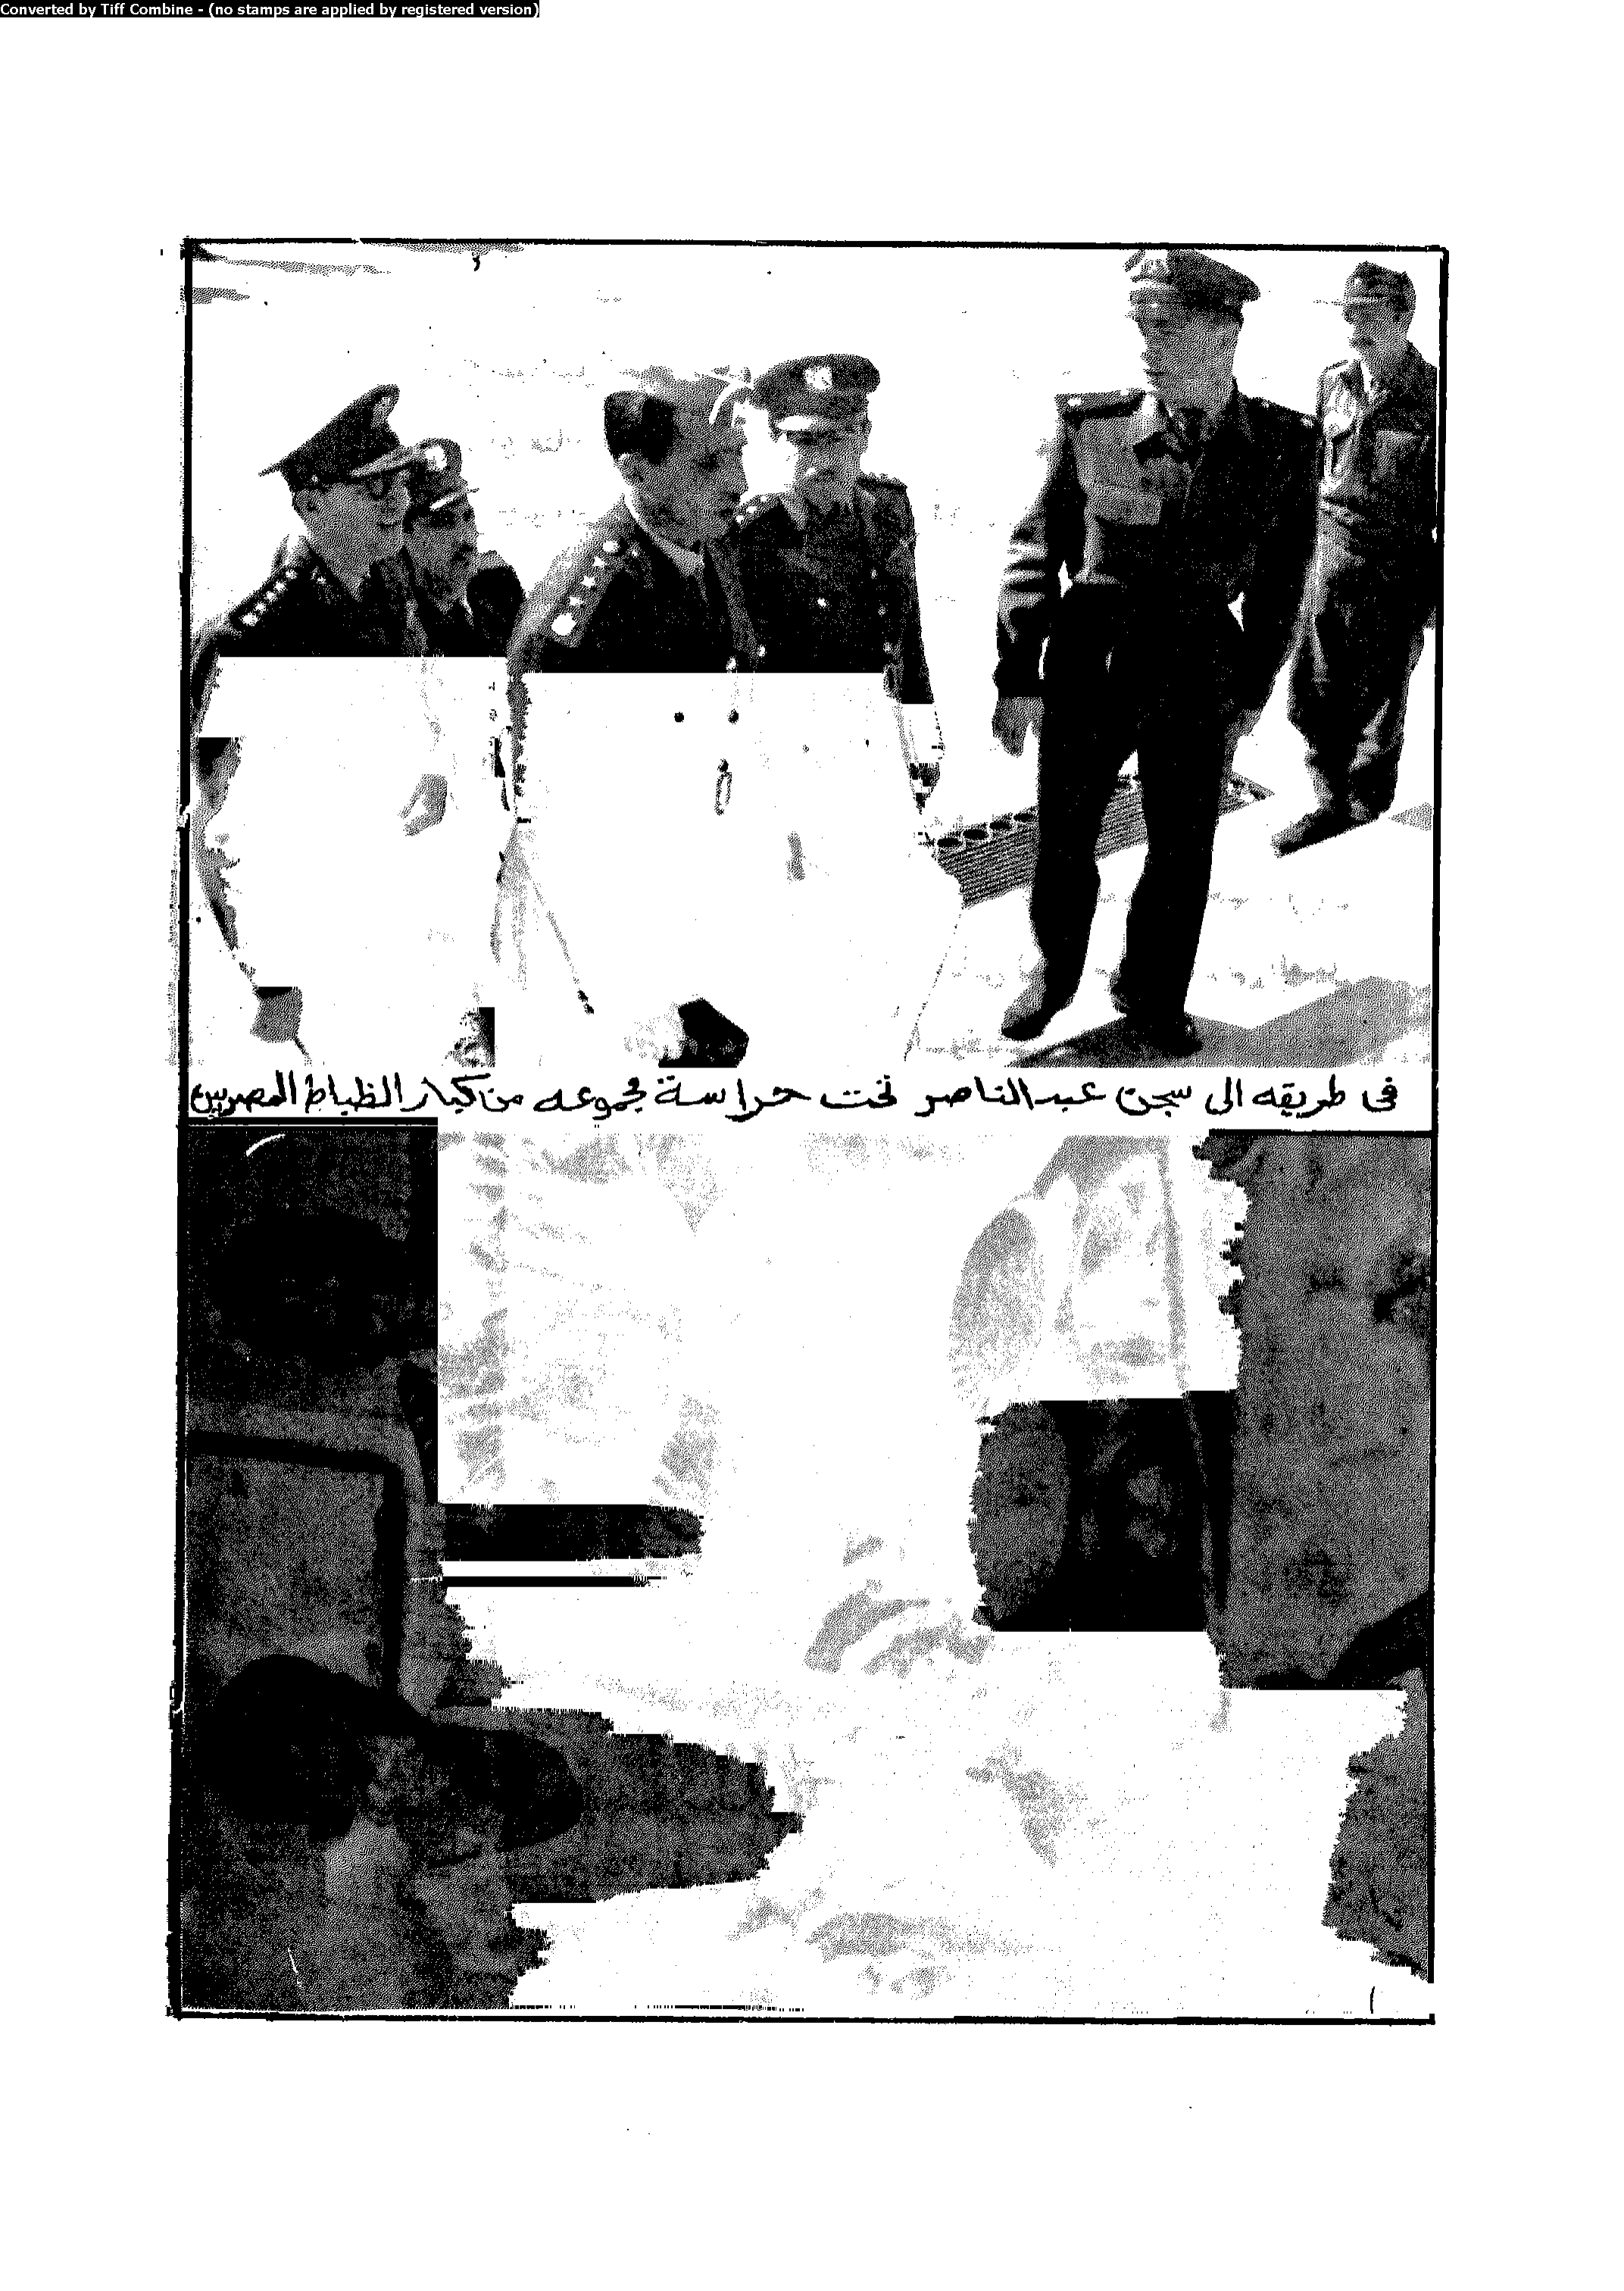 Converted by Tiff Combine - (no stamps are applied by registered version)
فى طريقه الى سجن عبد الناصر تحت حراسة مجموعه من كبار الظباط المصريين